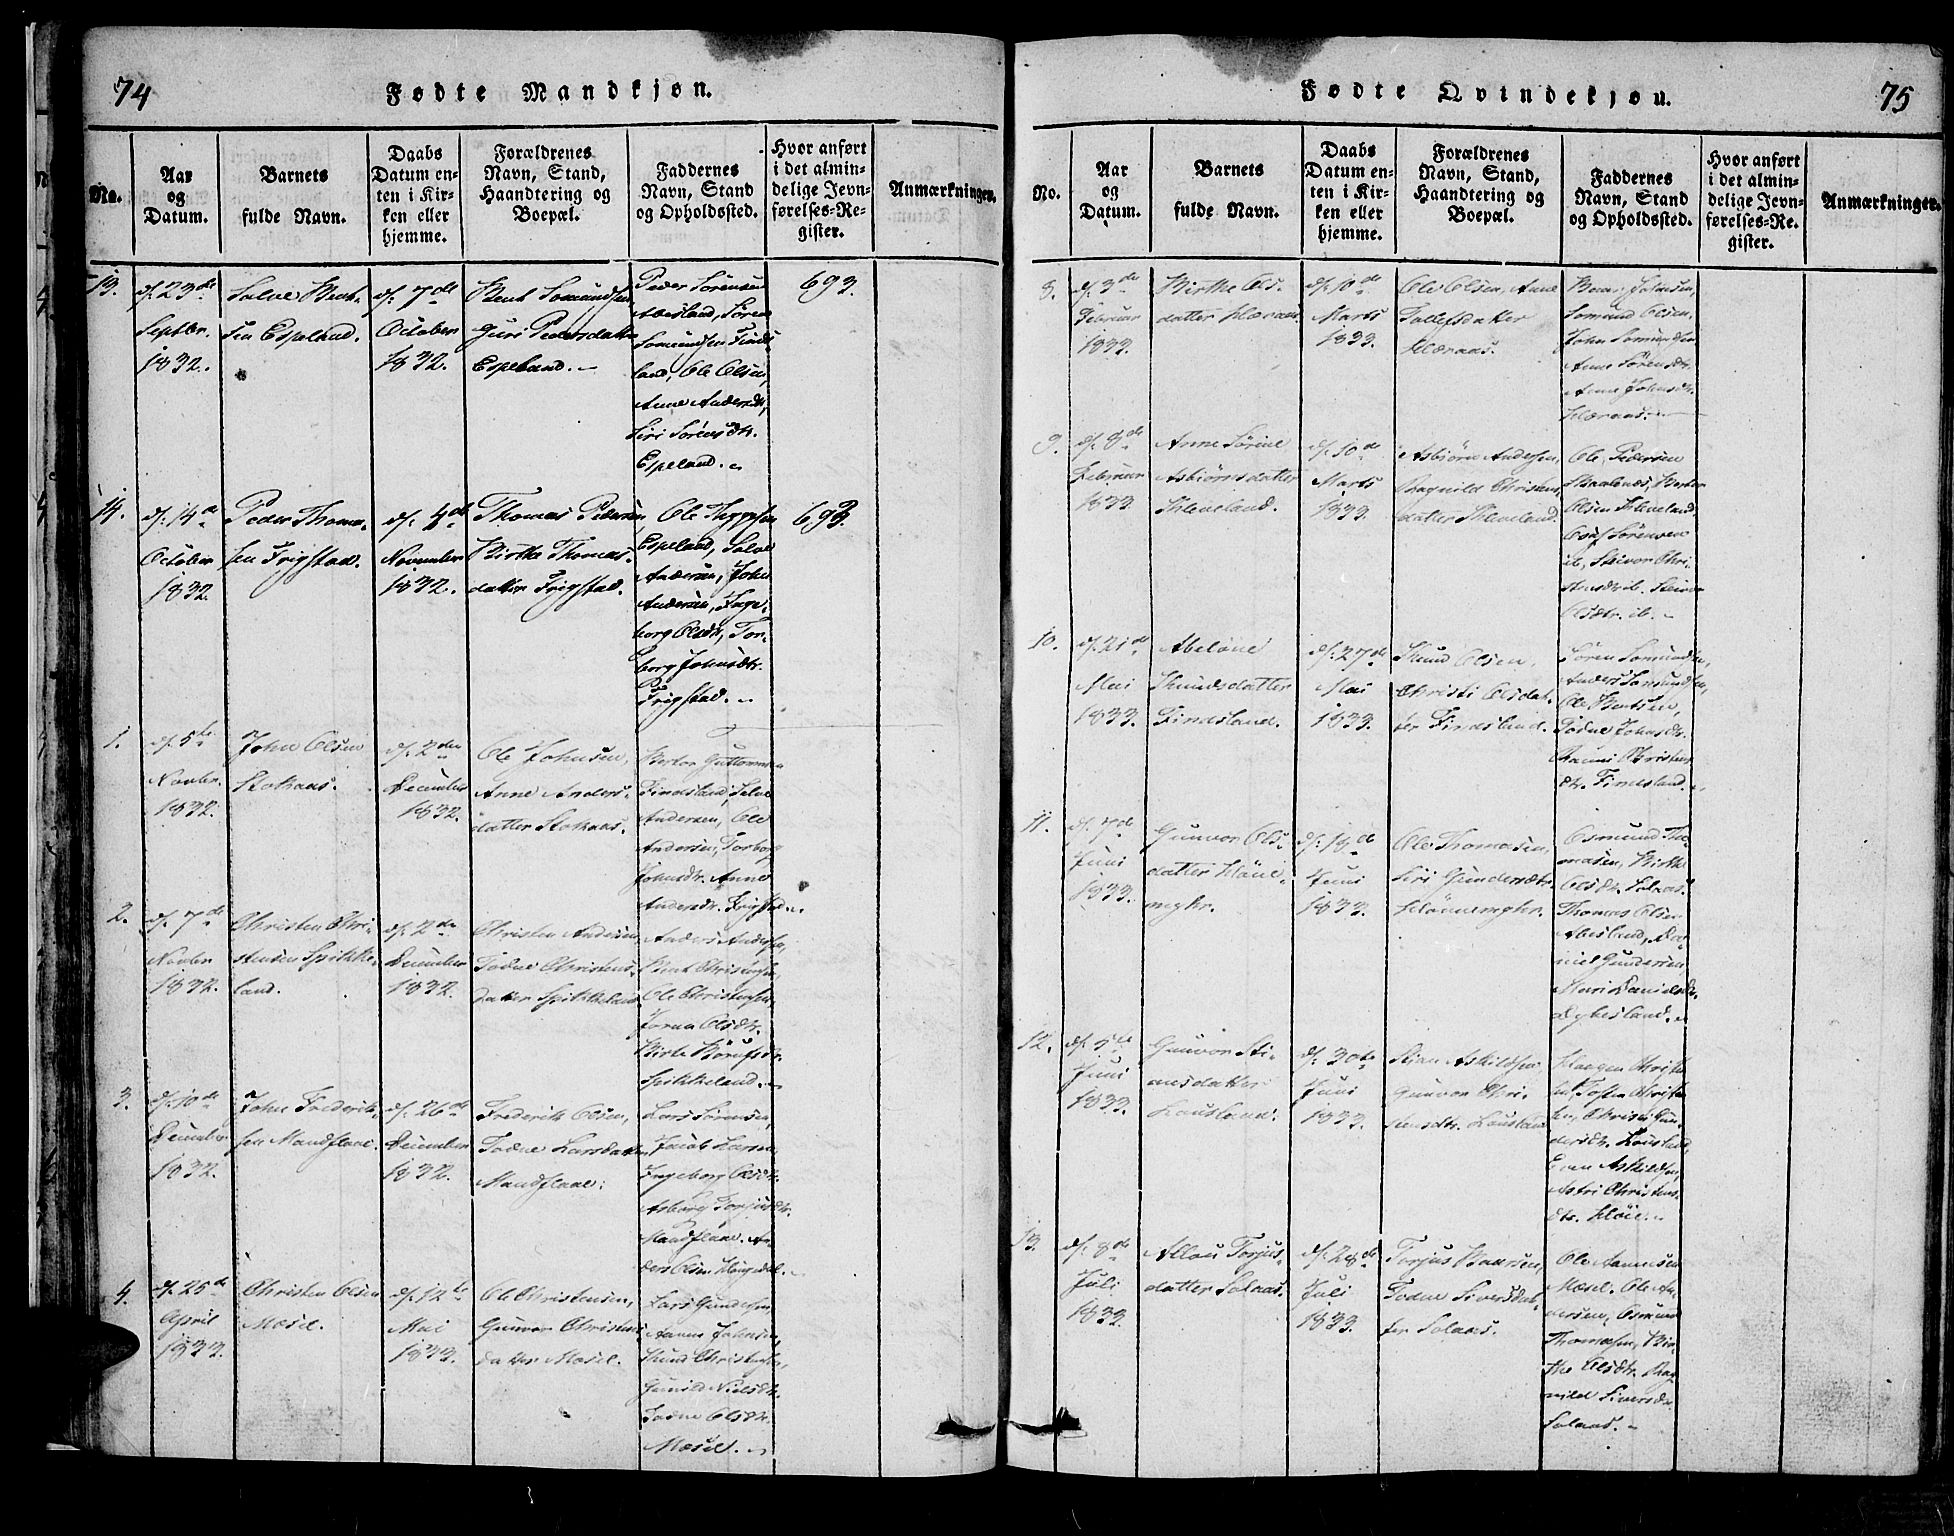 74
Fødte Mandkjøn.
No.
Aar
og
Datum.
Barnets
fulde Navn.
Daabs
Datum en-
ten i Kir-
ken eller
hjemme.
Forældrenes
Navn, Stand,
Haandtering og
Boepæl.
Faddernes
Navn, Stand
og Opholdssted.
Hvor anført
i det almin-
delige Jevn-
førelses-Re-
gister.
Anmærkninger.
13.
d. 23de
Septbr.
1832.
Salve Bent-
sen Espeland.
d. 7de
October
1832.
Bent Somundsen
Guri Pedersdatter
Espeland.
Peder Sörensen
Abesland, Sören
Somundsen Finds-
land, Ole Olsen,
Anne Andersdtr,
Siri Sörensdtr.
Espeland.
693.
14.
d. 14de
October
1832.
Peder Thoma-
sen Frigstad.
d. 4de
November
1832.
Thomas Pedersen
Birthe Thomas-
datter Frigstad.
Ole
Espeland, Salve
Andersen, John
Andersen, Inge-
borg Olsdtr, Tor-
borg Johnsdtr.
Frigstad.
693.
1.
d. 5te
Novbr.
1832.
John Olsen
Stokaas.
d. 2den
December
1832.
Ole Johnsen,
Anne Anders-
datter Stokaas.
Guttormsen
Findsland, Salve
Andersen, Ole
Andersen, Torborg
Johnsdtr. Anne
Andersdtr. Frigstad.
2.
d. 7de
Novbr
1832.
Christen Chri-
stensen Spikke-
land.
d. 2den
December
1832.
Christen Andersen,
Todne Christens-
datter Spikkeland
Anders Andersen,
Bent Christensen,
Ole Christensen
Olsdtr.
Birte
Spikkeland.
3.
d. 10de
December
1832.
John Frederik-
sen Mandflaae.
d. 26de
December
1832.
Frederik Olsen,
Todne Larsdatter
Mandflaae.
Lars Sörensen,
Jacob Larsen
Ingeborg Olsdtr.
Asborg Torjusdtr.
Mandflaae. An-
ders Olsen
4.
d. 25de
April
1833.
Christen Olsen
Mæsel.
d. 12te
Mai
1833.
Ole Christensen,
Gunvor Christens-
datter Mæsel.
Lars Gundersen
Johnsen,
Knud Christensen,
Gunild Nielsdtr.
Todne Olsdtr.
Mæsel.
Fødte Qvindekjøn.
75
No.
Aar
og
Datum.
Barnets
fulde Navn.
Daabs
Datum en-
ten i Kir-
ken eller
hjemme.
Forældrenes
Navn, Stand,
Haandtering og
Boepæl.
Faddernes
Navn, Stand
og Opholdssted.
Hvor anført
i det almin-
delige Jevn-
førelses-Re-
gister.
Anmærkninger.
8.
d. 3de
Februar
1833.
Birthe Ols-
datter
d. 10de
Marts
1833.
Ole Olsen, Anne
Tollefsdatter
Johnsen,
Somund Olsen,
John Somundsen
Anne Sörensdtr.
Anne Johnsdtr.
9.
d. 8de
Februar
1833.
Anne Sörine
Asbiörnsdatter
Kleveland.
d. 10de
Marts
1833.
Asbiörn Andersen,
Ragnild Christens-
datter Kleveland.
Ole Pedersen
Olsen Kleveland
Sörensen
ib. Steivor Chri-
stensdtr ib.
Olsdtr. ib.
10.
d. 21de
Mai
1833.
Abelöne
Knudsdatter
Findsland.
d. 27de
Mai
1833.
Knud Olsen,
Christi Olsdat-
ter Findsland.
Sören Somundsen,
Anders Somundsen,
Ole Bentsen,
Todne Johnsdtr.
Christens-
dtr. Findsland.
11.
d. 7de
Juni
1833.
Gunvor Ols-
datter
d. 18de
Juni
1833.
Ole Thomasen,
Siri Gundersdtr.
Osmund Tho-
masen, Birthe
Olsdtr. Solaas.
Thomas Olsen
Abesland, Da-
niel Gundersen
Mari Danielsdtr.
12.
d. 5te
Juni
1833.
Gunvor Sti-
ansdatter
Lousland.
d. 30te
Juni
1833.
Stian Askildsen
Gunvor Chri-
stensdtr. Lousland
Haagen Christen-
sen, Tosten Christen-
sen, Christi Gun-
dersdtr. Lousland
Even Askildsen,
Astri Christens-
dtr.
13.
d. 8de
Juli
1833.
Torjus-
datter Solaas.
d. 28de
Juli
1833.
Torjus
Todne Siversdat-
ter Solaas.
Ole
Mæsel. Ole An-
dersen, Osmund
Thomasen, Bir-
the Olsdtr. Rag-
nild Siversdtr.
Solaas.